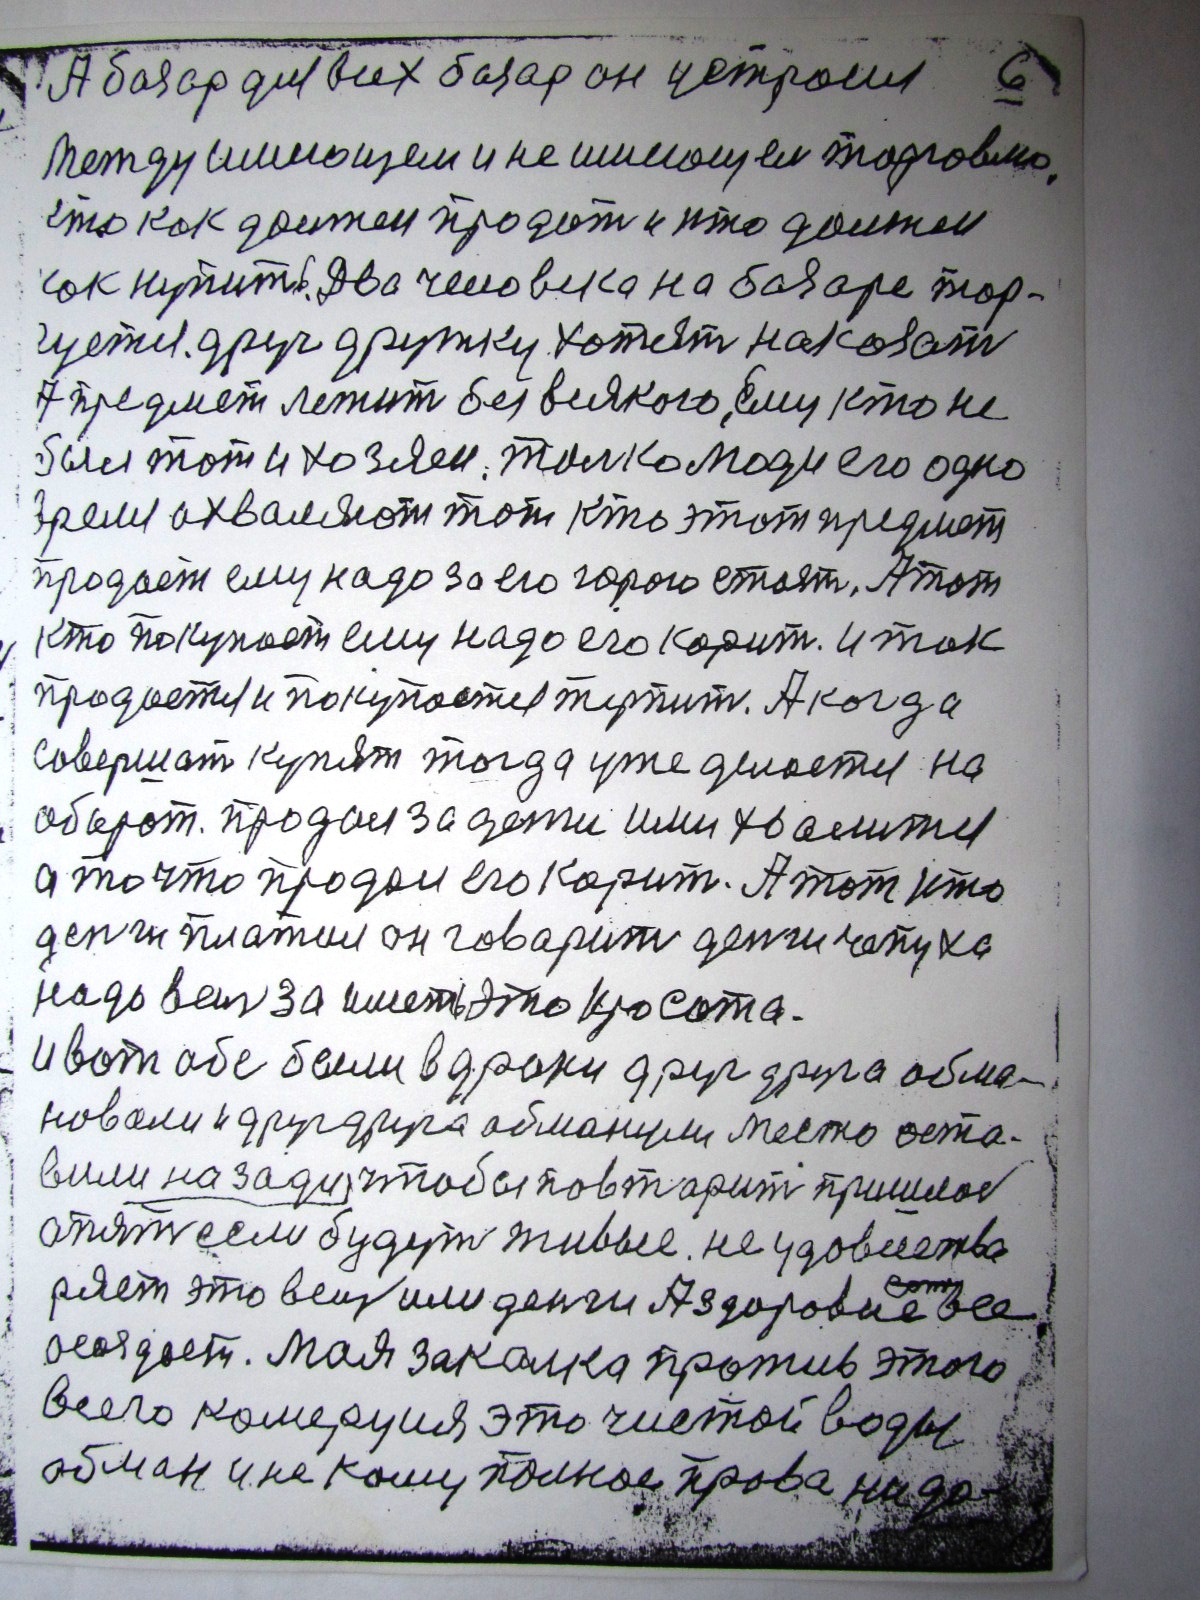 А базар для всех базар он устроил 6
Между имиющем и не имиющем торговлю,
кто как должен продат и кто должен
как купить. Два человека на базаре тор-
гуется. друг дружку хотят наказат
А предмет лежит без всякого, Ему кто не
был тот и хозяен. толко люди его одно
зрели ахваляют тот кто этот предмет
продает ему надо за его горою стоят. А тот
кто покупает ему надо его корит. и так
продается и покупается терпит. А когда
совершат купят тогда уже делается на
обарот. продал за денги ими хвалится
а то что продал его корит. А тот кто
денги платил он говарит денги чепуха
надо вещ за иметь это красота.
И вот обе были в драки друг друга обма-
новали и друг друга обманули место оста-
вили на зади, чтобы повтарит пришлос
опят если будут живые. не удовлества
ряет это вещ или денги А здоровие все
создает. Мая закалка против этого
всего комерция это чистой воды
обман и не кому полное права ни да-